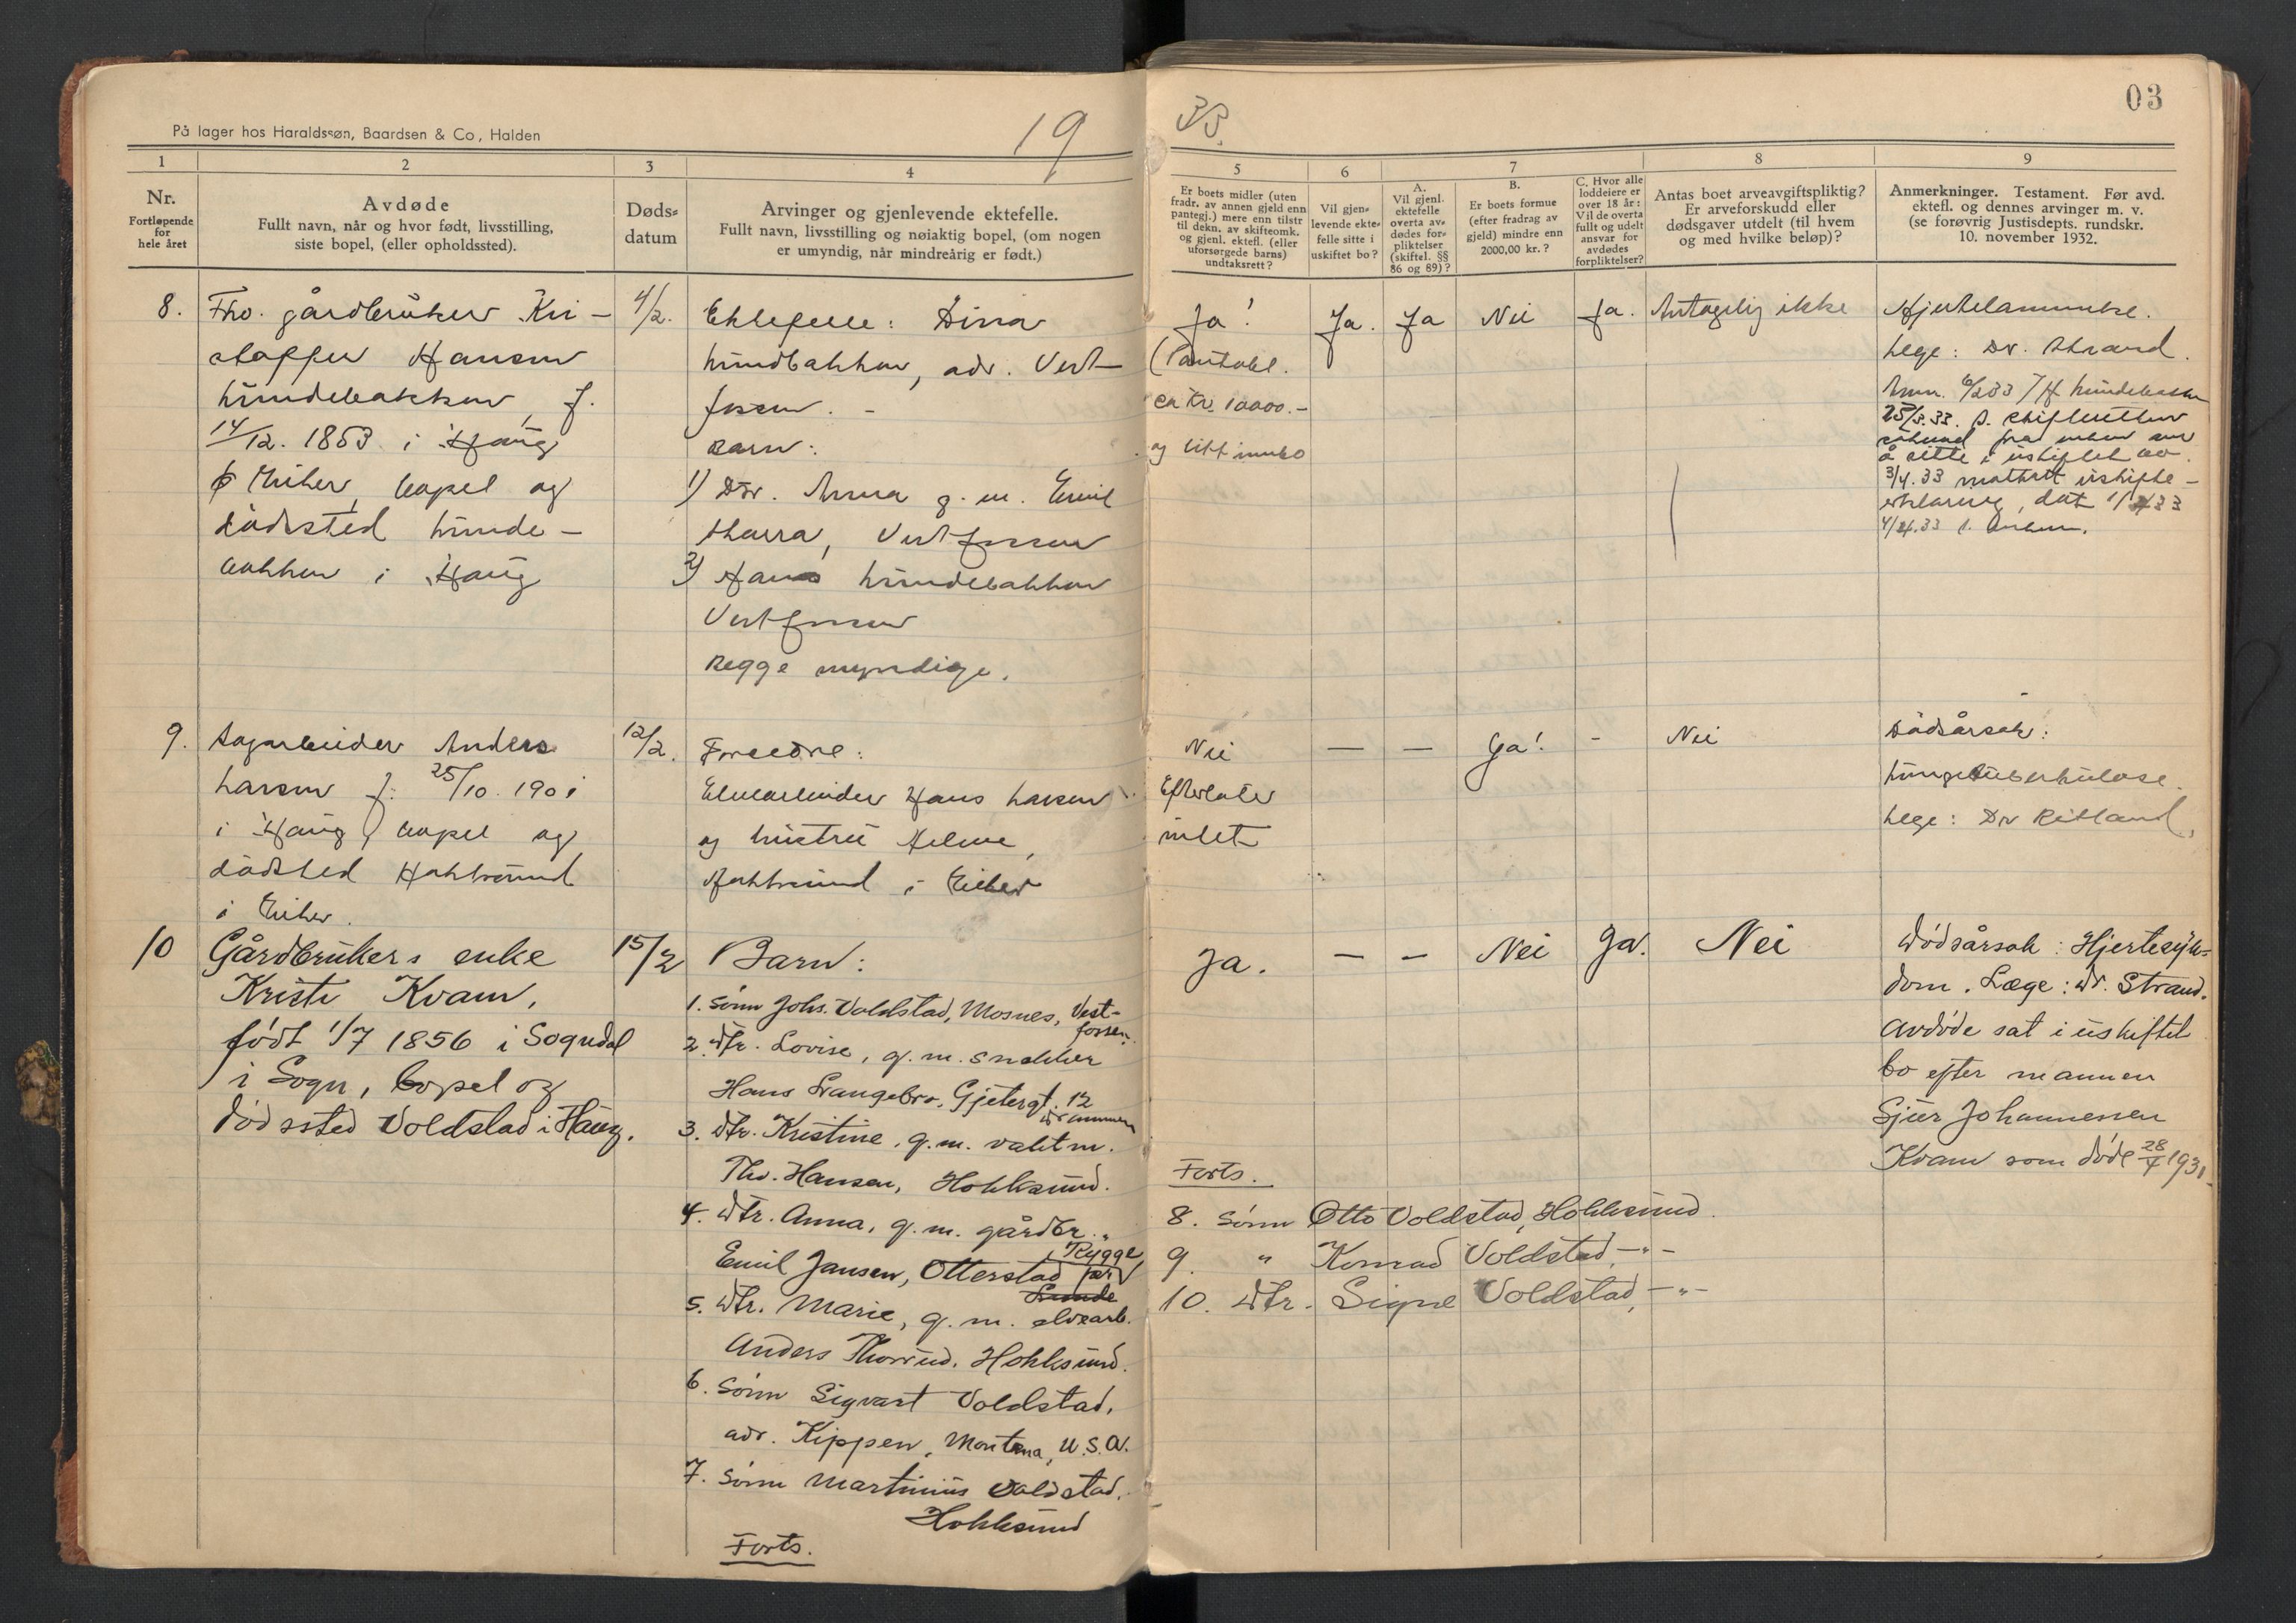 På lager hos Haraldssøn, Baardsen & Co, Halden
19
33
03
1
2
3
4
5
6
7
8
9
Nr.
Fortløpende
for
hele året
Avdøde
Fullt navn, når og hvor født, livsstilling,
siste bopel, (eller opholdssted).
Døds-
datum
Arvinger og gjenlevende ektefelle.
Fullt navn, livsstilling og nøiaktig bopel, (om nogen
er umyndig, når mindreårig er født.)
Er boets midler (uten
fradr. av annen gjeld enn
pantegj.) mere enn tilstr
til dekn. av skifteomk.
og gjenl. ektefl. (eller
uforsørgede barns)
undtaksrett?
Vil gjen-
levende ekte-
felle sitte i
uskiftet bo?
A.
Vil gjenl.
ektefelle
overta av-
dødes for-
pliktelser
(skiftel. §§
86 og 89)?
B.
Er boets formue
(efter fradrag av
gjeld) mindre enn
2000,00 kr.?
C. Hvor alle
loddeiere er
over 18 år:
Vil de overta
fullt og udelt
ansvar for
avdødes
forpliktelser?
Antas boet arveavgiftspliktig?
Er arveforskudd eller
dødsgaver utdelt (til hvem
og med hvilke beløp)?
Anmerkninger. Testament. Før avd.
ektefl. og dennes arvinger m. v.
(se forøvrig Justisdepts. rundskr.
10. november 1932.
8.
Fho. gårdbruker Kri-
stoffer Hansen
Lundebakken, f.
14/12. 1853 i Haug
Eiker, bopel og
dødssted Lunde-
bakken i Haug
4/2.
Ektefelle: Dina
Lundbakken, adr. Vest-
fossen. -
Barn:
1) Dtr. Anna g. m. Emil
Vestfossen
2) Hans Lundebakken
Vestfossen
Begge myndige.
Ja!
(Pantobl.
ca kr. 10000.-
og litt innbo
Ja.
Ja
Nei
Ja.
Antagelig ikke
Hjertelammelse.
Lege: Dr. Strand.
25/3.33. s. skifteretten
å sitte i uskiftet bo.
3/4.33 mottatt uskifte-
erklæring, dat 1/4 33
9.
Sagarbeider Anders
Larsen f: 25/10. 1901
i Haug, bopel og
dødssted Hokksund
i Eiker.
12/2.
Foreldre:
Elvearbeider Hans Larsen
og hustru Helene,
Hokksund i Eiker
Nei
Efterlater
intet
—
—
Ja!
-
Nei
Dødsårsak:
Lungetuberkulose.
Lege: Dr Ritland.
10
Gårdbrukers enke
Kristi Kvam,
født 1/7 1856 i Sogndal
i Sogn, bopel og
dødssted Voldstad i Haug.
15/2
Barn:
1. Sønn Johs. Voldstad, Mosnes, Vest-
fossen.
2. Dtr. Lovise, g. m. snekker
Hans Langebro, Gjetergt. 12
Drammen
3. Dtr. Kristine, g. m. vaktm.
Thv. Hansen, Hokksund.
4. Dtr. Anna, g. m. gårdbr.
Emil Jansen, Otterstad pr. Rygge
Lunde
5. Dtr. Marie, g. m. elvearb.
Anders Thorrud, Hokksund.
6. Sønn Sigvart Voldstad,
adr. Kippen, Montana, U.S.A.
7. Sønn Martinius Voldstad,
Hokksund
Forts.
Ja.
—
—
Nei
Ja.
Nei
Dødsårsak: Hjertesyk-
dom. Læge: Dr. Strand.
Avdøde sat i uskiftet
bo efter mannen
Sjur Johannessen
Kvam som døde 28/7 1931.
Forts.
8. Sønn Otto Voldstad, Hokksund.
9. " Konrad Voldstad, -"-
10. Dtr. Signe Voldstad, -"-